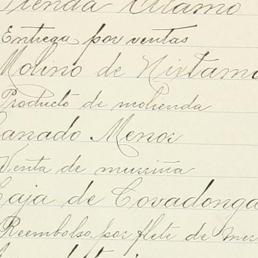 Tienda Alamo
Entrega por ventas
Molino de Nixtamal
Producto de molienda
Ganado Menor
Venta de
Caja de Covadonga
Reembolso por flete de